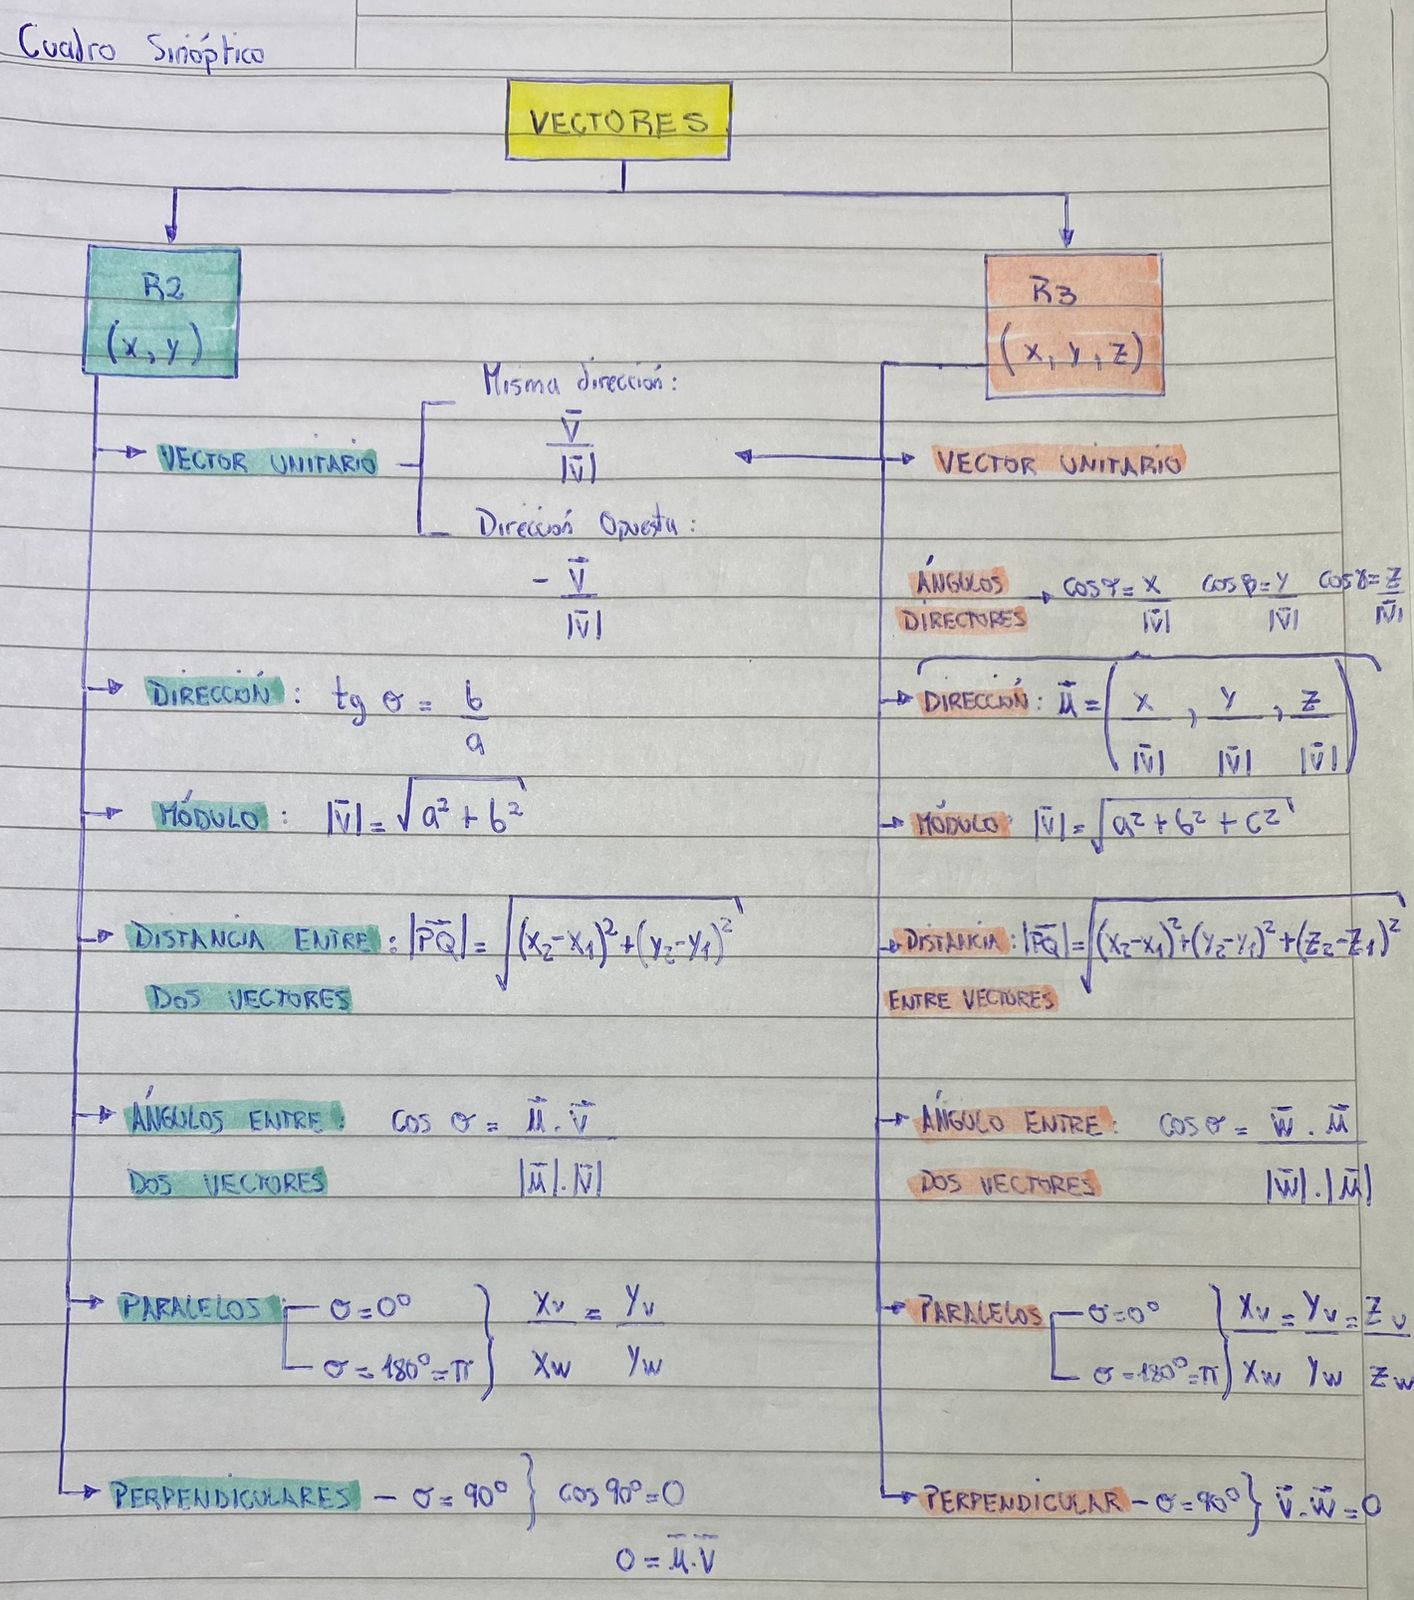 Cuadro Sinóptico
VECTORES
R2
(x, y)
VECTOR UNITARIO
Misma dirección:
V̄ / |v̄|
Dirección Opuesta:
- V̄ / |v̄|
DIRECCIÓN: tg σ = b / a
MÓDULO: |v̄| = √(a² + b²)
DISTANCIA ENTRE: |PQ| = √((x₂-x₁)² + (y₂-y₁)²)
DOS VECTORES
ÁNGULOS ENTRE: cos σ = ū . v̄ / |ū| . |v̄|
DOS VECTORES
PARALELOS σ = 0°
σ = 180° = π } Xv / Xw = Yv / Yw
PERPENDICULARES - σ = 90° } cos 90° = 0
0 = ū . v̄
R3
(x, y, z)
VECTOR UNITARIO
ÁNGULOS
DIRECTORES → cos α = x / |v̄| cos β = y / |v̄| cos γ = z / |v̄|
DIRECCIÓN: ū = (x / |v̄| , y / |v̄| , z / |v̄|)
MÓDULO: |v̄| = √(a² + b² + c²)
DISTANCIA: |PQ| = √((x₂-x₁)² + (y₂-y₁)² + (z₂-z₁)²)
ENTRE VECTORES
ÁNGULO ENTRE: cos σ = w̄ . ū / |w̄| . |ū|
DOS VECTORES
PARALELOS σ = 0°
σ = 180° = π } Xv / Xw = Yv / Yw = Zv / Zw
PERPENDICULAR - σ = 90° } v̄ . w̄ = 0